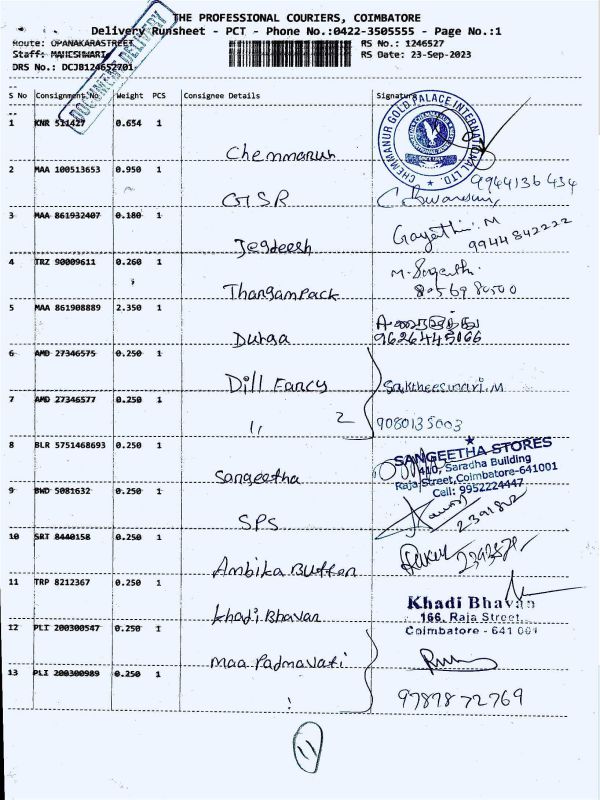 THE PROFESSIONAL COURIERS, COIMBATORE
Delivery Runsheet - PCT - Phone No.:0422-3505555 - Page No.:1
Route: OPANAKARASTREET RS No.: 1246527
Staff: MAHESHWARI RS Date: 23-Sep-2023
DRS No.: DCJB124652701
DOCUMENT DELIVERY
S No Consignment No. Weight PCS Consignee Details Signature
1 KNR 511427 0.654 1
Chemmanur
CHEMMANUR GOLD PALACE INTERNATIONAL LTD.
2 MAA 100513653 0.950 1
9944136434
GSR
3 MAA 861932407 0.180 1
Gayathri. M
9944842222
Jegdeesh
4 TRZ 90009611 0.260 1
Thangampack
5 MAA 861908889 2.350 1
Durga
9626445066
6 AMD 27346575 0.250 1
Dill Fancy
Saktheeswari. M
7 AMD 27346577 0.250 1
11 2
9080135003
8 BLR 5751468693 0.250 1
Sangeetha
SANGEETHA STORES
410, Saradha Building
Raja Street, Coimbatore-641001
Cell: 9952224447
9 BWD 5081632 0.250 1
SPS
10 SRT 8440158 0.250 1
Ambika Button
11 TRP 8212367 0.250 1
Khadi Bhavan
Khadi Bhavan
166, Raja Street,
Coimbatore - 641 001
12 PLI 200300547 0.250 1
Maa Padmavati
13 PLI 200300989 0.250 1
9787872769
11